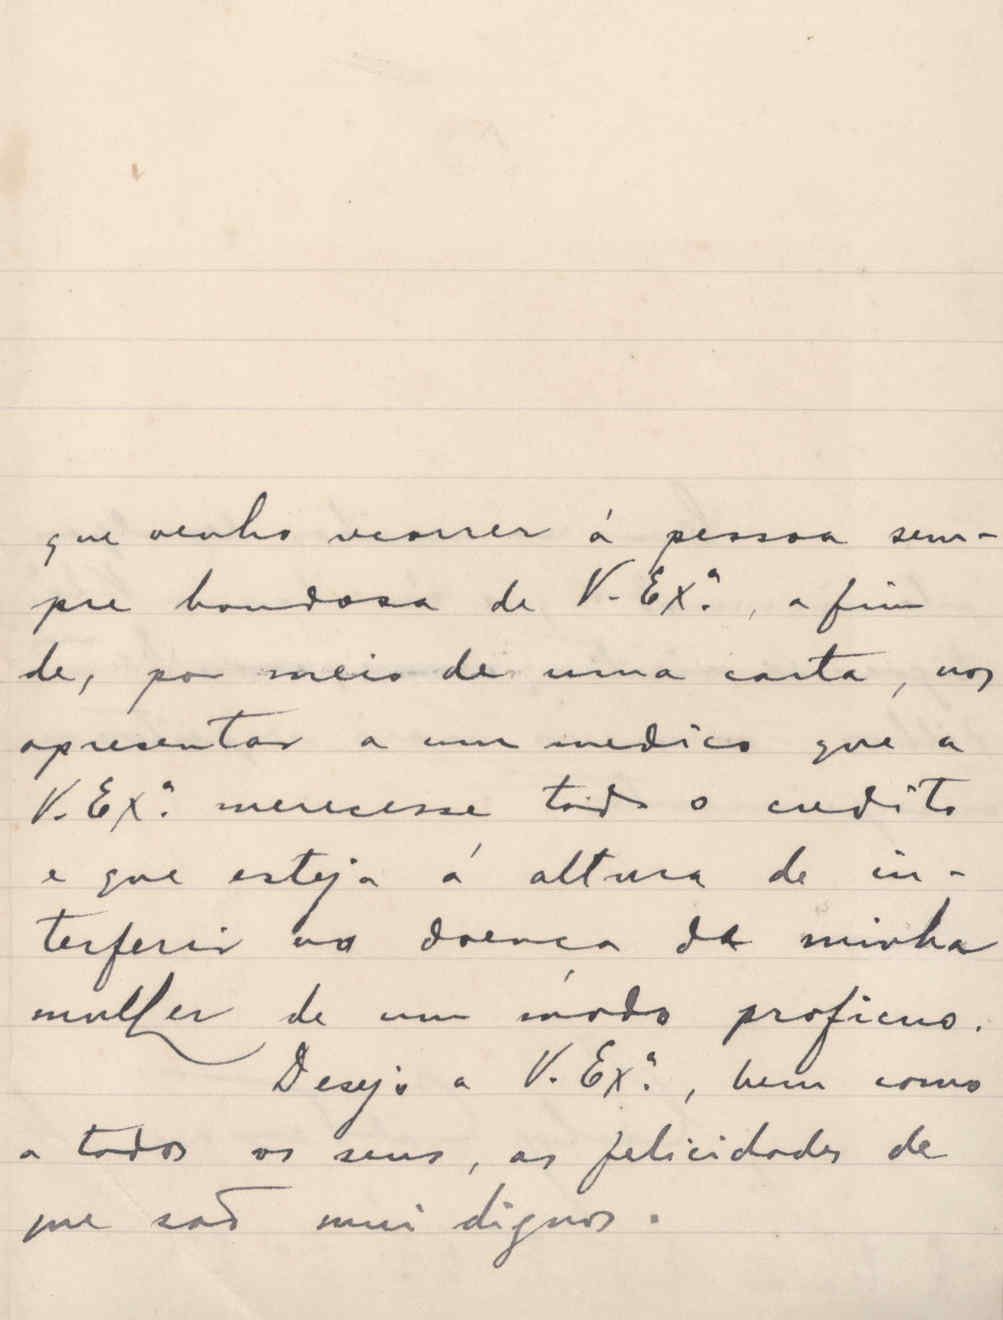 que venho recorrer á pessoa sem-
pre bondosa de V. Exª., afim
de, por meio de uma carta, nos
apresentar a um medico que a
V. Exª. merecesse todo o credito
e que esteja á altura de in-
terferir na doença da minha
mulher de um módo proficuo.
Desejo a V. Exª., bem como
a todos os seus, as felicidades de
que saõ mui dignos.